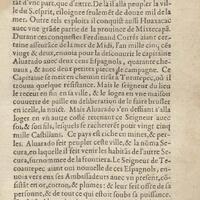 rat d'vne part, que d'autre. De là il alla peupler la vil-
le du S. esprit, esloignée seulement de douze mil de la
mer. Outre tels exploits il conquist aussi Huaxacac
auec vne grande partie de la prouince de Mixtecapā.
Durant ces conquestes Ferdinand Cortés aiant cer-
taine asseurance de la mer de Midi, l'an mille cinq cens,
vingt & deux, enuoia pour la descouurir le capitaine
Aluarado auec deux cens Espagnols, quarante che-
uaux, & auec deux petites pieces de campagne. Ce
Capitaine se meit en chemin tirāt à Tututepec, où il
trouua quelque resistance. Mais le seigneur du lieu
le receut en fin en sa ville, & le logea en vne maison
couuerte de paille en deliberation de le faire brusler
icelle, la nuict. Mais Aluarado s'en deffiant alla
loger en vn autre costé retenant ce Seigneur auec
soi, & son fils, lesquels se racheterēt pour vingt cinq
mille Castillans. Ce pays est riche en mines, & per-
les. Aluarado feit peupler ceste ville, & la nōma Se-
cura, en laquelle il feit venir les habitās de l'autre Se-
cura, surnommée de la frontiera. Le Seigneur de Te-
coantepec aiant ouy nouuelle de ces Espagnols, en-
uoia vers eux ses Ambassadeurs auec vn present, cō-
sistāt en or, cottōn, & plumes: & leur feit offre de sa
personne, & de tout ce qui estoit en sa puissance, &